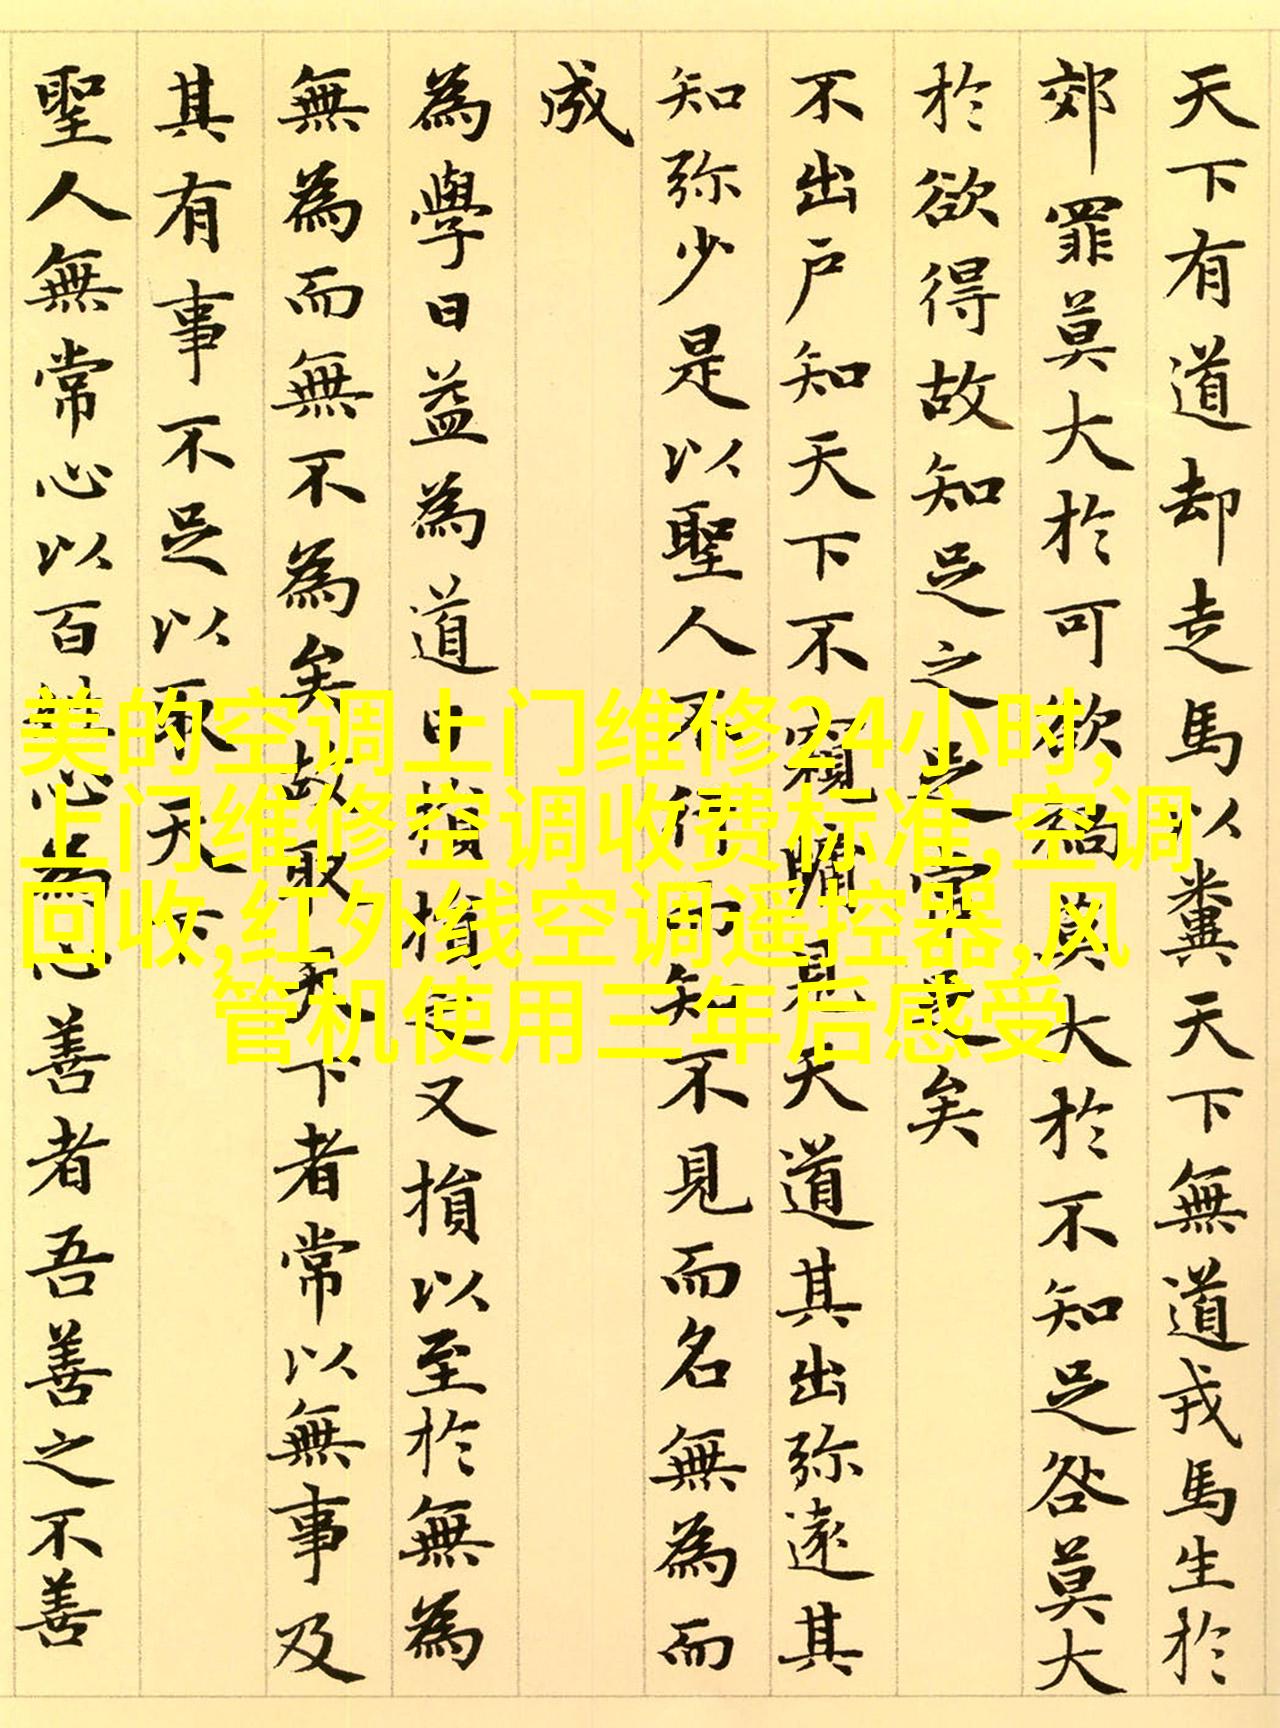 天下有道却走馬以糞天下無道戎馬生於
郊罪莫大於可欲禍莫大於不知足咎莫大
於欲得故知足之足常足矣
不出戶知天下不窺牖見天道其出弥遠其
知弥少是以聖人不行而知不見而名無為而
成
為學日益為道日損損之又損以至於無為
無為而無不為矣故取天下者常以無事及
其有事不足以取天下
聖人無常心以百姓心為心善者吾善之不善
美的空调上门维修24小时,
上门维修空调收费标准,空调
回收,红外线空调遥控器,风
管机使用三年后感受